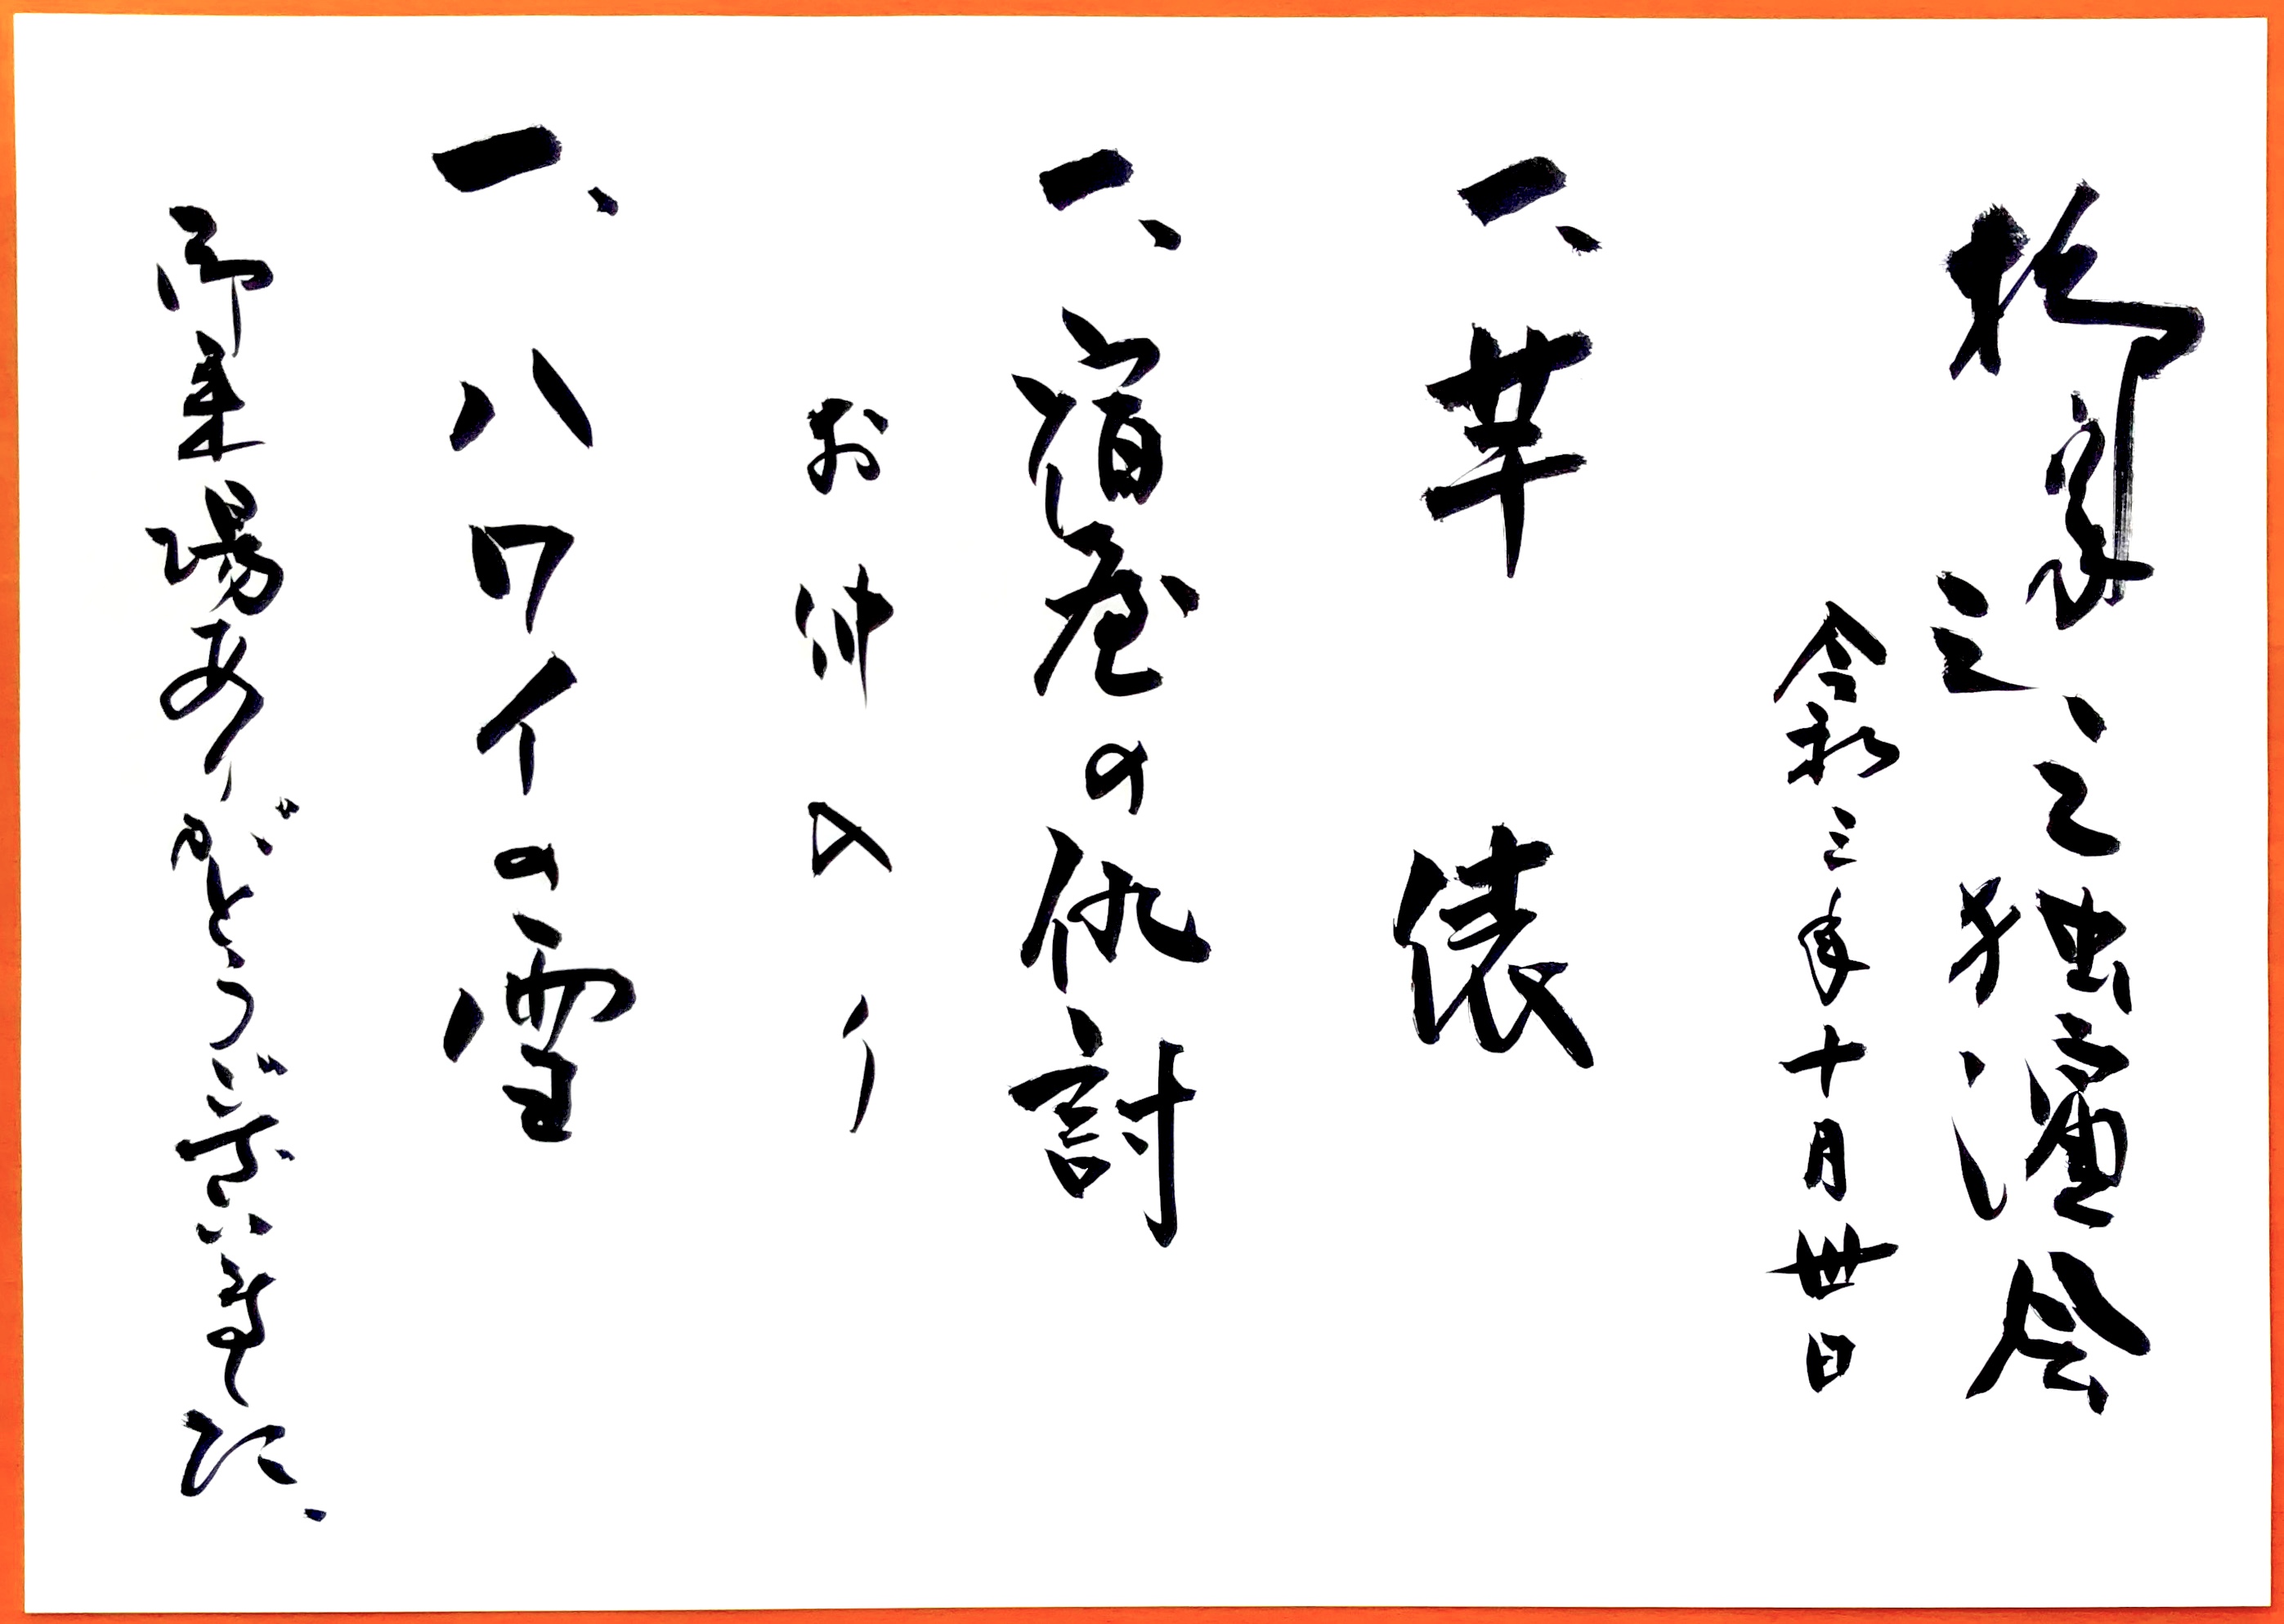 柳家三三独演会
令和三年十月卅日
一、華 俵
一、宿屋の仇討
お仲入り
一、ハワイの雪
御来場ありがとうございました、